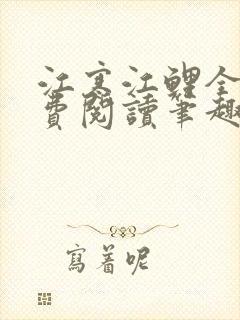 江寒江鲤全
費閱讀筆趣
寫着呢